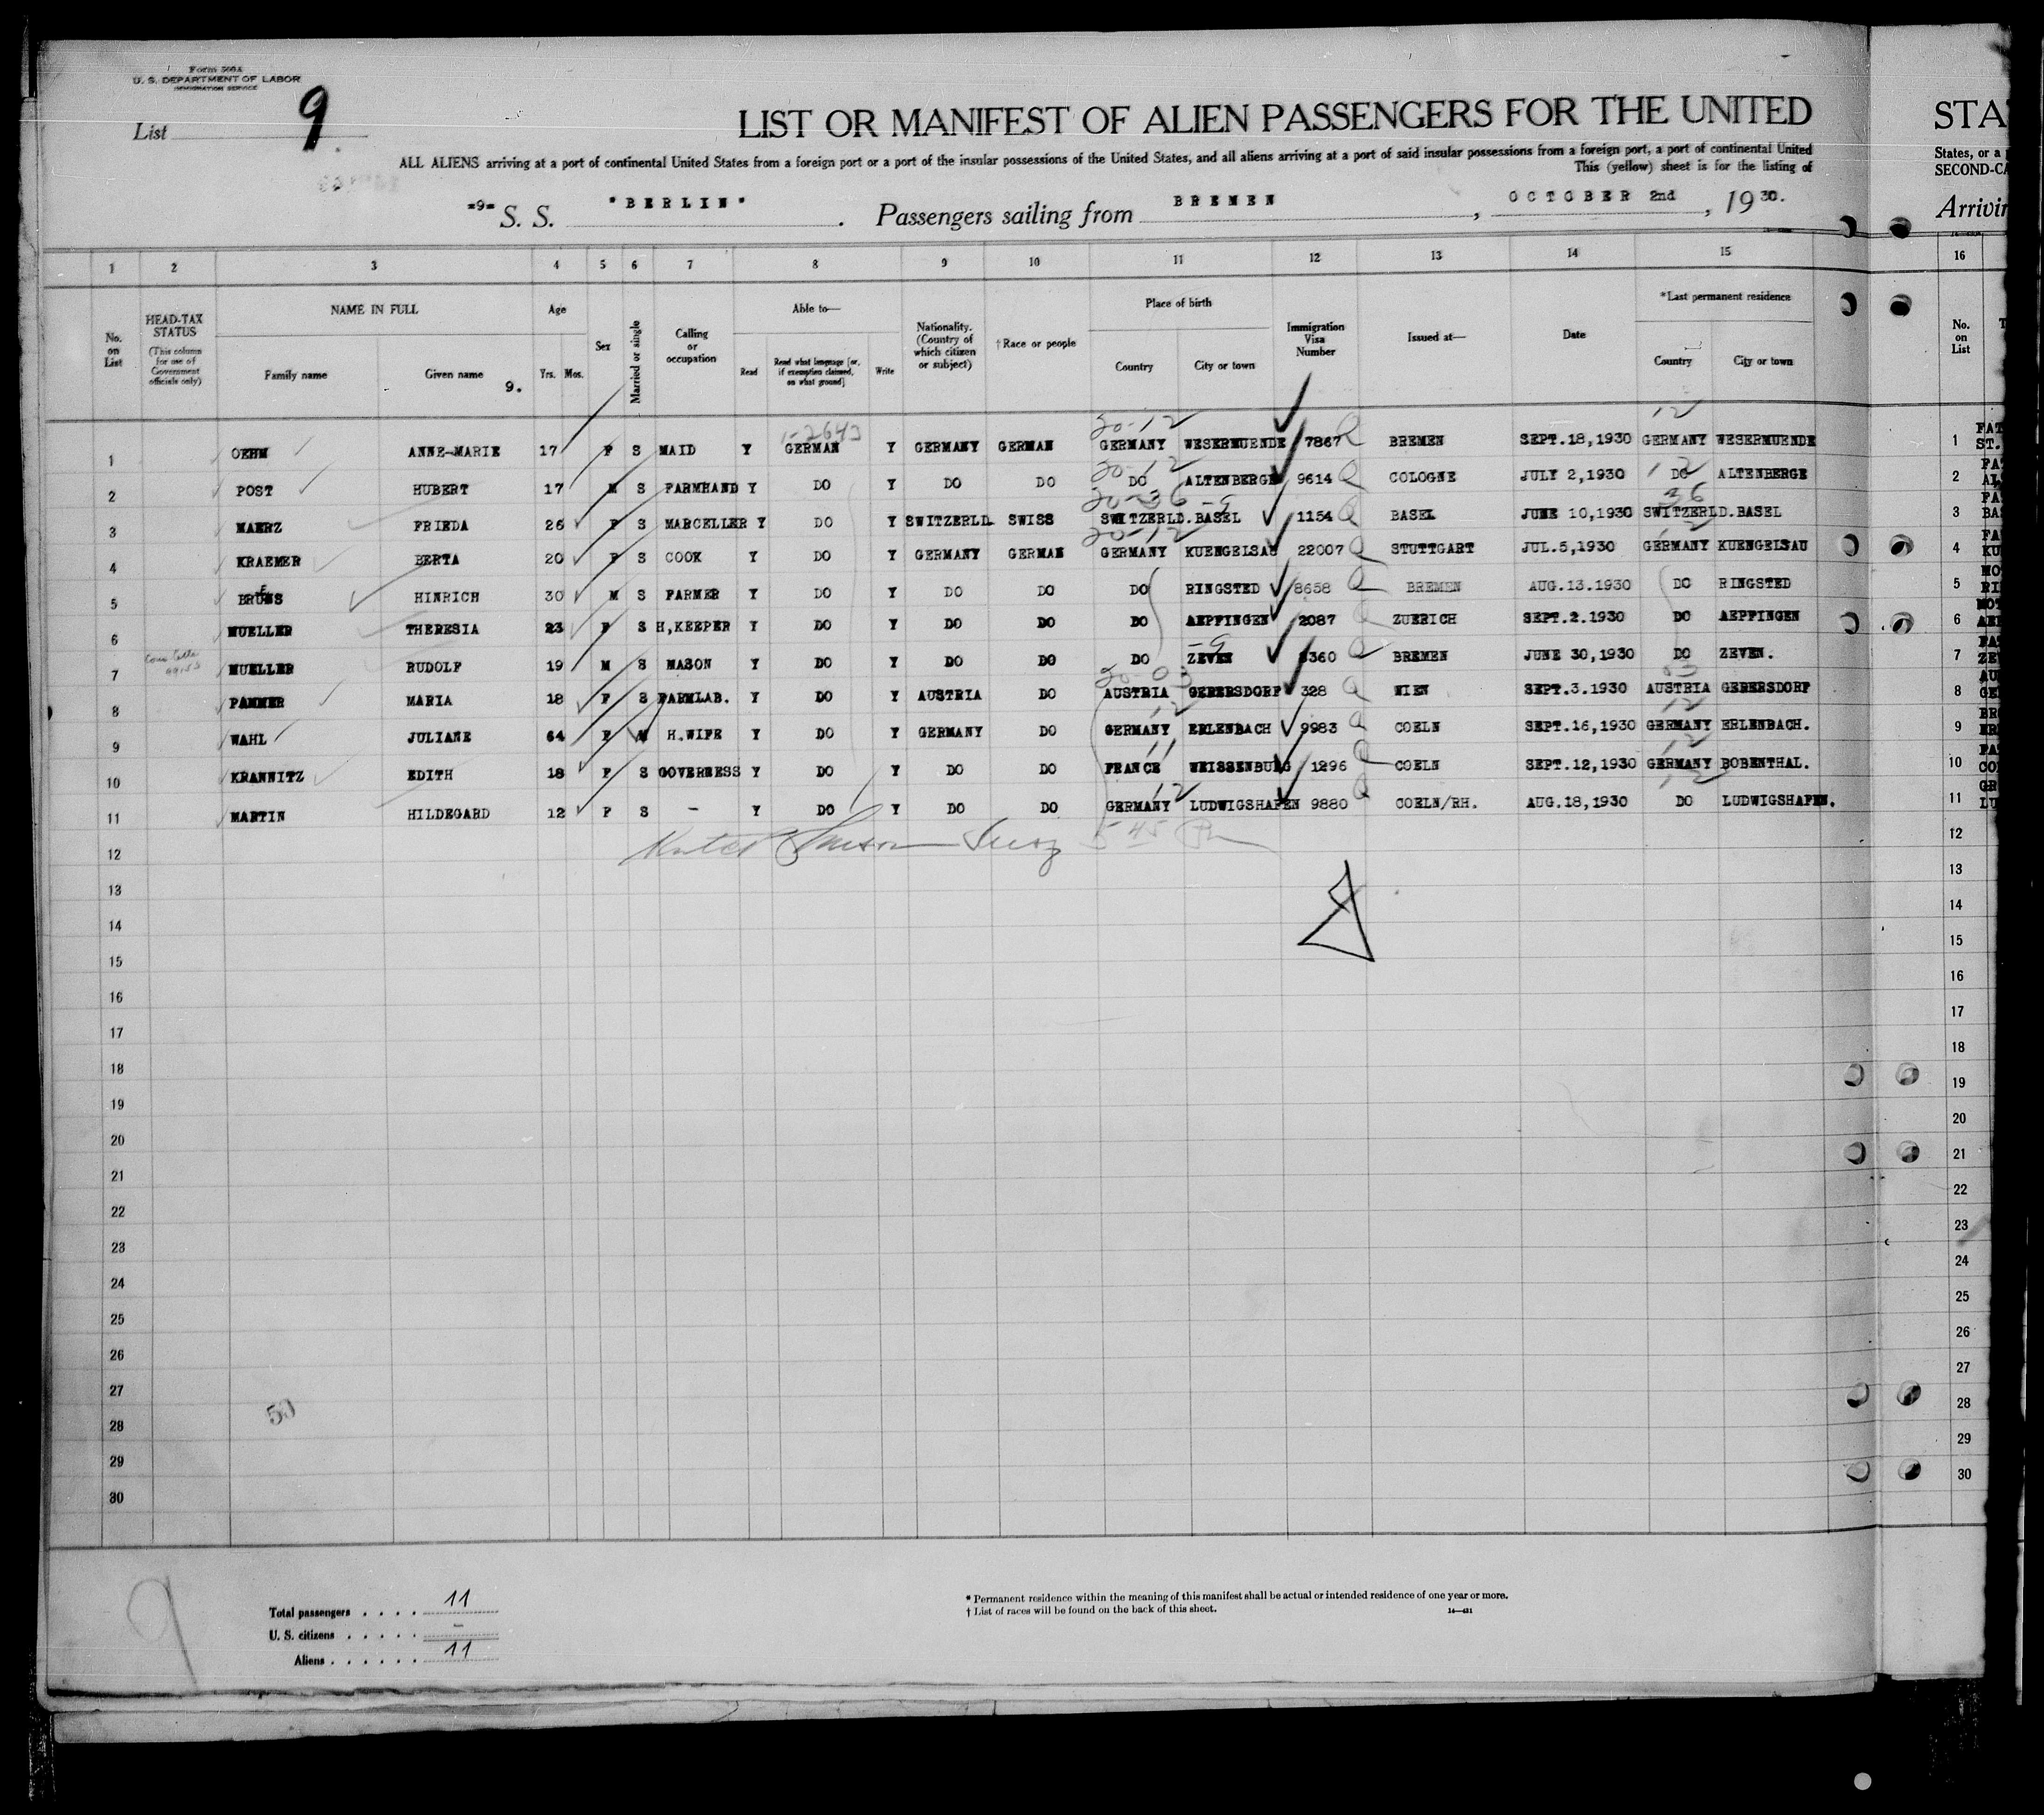 Form 500A
U. S. DEPARTMENT OF LABOR
IMMIGRATION SERVICE
List 9
LIST OR MANIFEST OF ALIEN PASSENGERS FOR THE UNITED
STA
ALL ALIENS arriving at a port of continental United States from a foreign port or a port of the insular possessions of the United States, and all aliens arriving at a port of said insular possessions from a foreign port, a port of continental United
States, or a
This (yellow) sheet is for the listing of
SECOND-CA
"9" S. S. "BERLIN". Passengers sailing from BREMEN, OCTOBER 2nd, 1930.
Arrivin
1 2 3 4 5 6 7 8 9 10 11 12 13 14 15 16
No. on List
HEAD-TAX STATUS (This column for use of Government officials only)
NAME IN FULL
Family name Given name 9.
Age
Yrs. Mos.
Sex
Married or single
Calling or occupation
Able to—
Read
Read what language [or, if exemption claimed, on what ground]
Write
Nationality. (Country of which citizen or subject)
†Race or people
Place of birth
Country City or town
Immigration Visa Number
Issued at—
Date
*Last permanent residence
Country City or town
No. on List
1-2643 20-12 12
1 OEHM ANNE-MARIE 17 F S MAID Y GERMAN Y GERMANY GERMAN GERMANY WESERMUENDE 7867 BREMEN SEPT.18,1930 GERMANY WESERMUENDE 1
20-12 12
2 POST HUBERT 17 M S FARMHAND Y DO Y DO DO DO ALTENBERGE 9614 COLOGNE JULY 2,1930 DO ALTENBERGE 2
20-36 -9 36
3 MAERZ FRIEDA 26 F S MARCELLER Y DO Y SWITZERLD. SWISS SWITZERLD. BASEL 1154 BASEL JUNE 10,1930 SWITZERLD. BASEL 3
20-12
4 KRAEMER BERTA 20 F S COOK Y DO Y GERMANY GERMAN GERMANY KUENGELSAU 22007 STUTTGART JUL.5,1930 GERMANY KUENGELSAU 4
5 BRUNS HINRICH 30 M S FARMER Y DO Y DO DO DO RINGSTED 8658 BREMEN AUG.13.1930 DO RINGSTED 5
6 MUELLER THERESIA 23 F S H,KEEPER Y DO Y DO DO DO AEPFINGEN 2087 ZUERICH SEPT.2.1930 DO AEPFINGEN 6
-9
7 MUELLER RUDOLF 19 M S MASON Y DO Y DO DO DO ZEVEN 8360 BREMEN JUNE 30,1930 DO ZEVEN. 7
20-03 03
8 PAMMER MARIA 18 F S FARMLAB. Y DO Y AUSTRIA DO AUSTRIA GERERSDORF 328 WIEN SEPT.3.1930 AUSTRIA GERERSDORF 8
12 12
9 WAHL JULIANE 64 F M H.WIFE Y DO Y GERMANY DO GERMANY ERLENBACH 9983 COELN SEPT.16,1930 GERMANY ERLENBACH. 9
11 12
10 KRANNITZ EDITH 18 F S GOVERNESS Y DO Y DO DO FRANCE WEISSENBURG 1296 COELN SEPT.12,1930 GERMANY BOBENTHAL. 10
12 12
11 MARTIN HILDEGARD 12 F S - Y DO Y DO DO GERMANY LUDWIGSHAFEN 9880 COELN/RH. AUG.18,1930 DO LUDWIGSHAFEN. 11
12 5 45 12
13 13
14 14
15 15
16 16
17 17
18 18
19 19
20 20
21 21
22 22
23 23
24 24
25 25
26 26
27 27
50
28 28
29 29
30 30
9
Total passengers . . . . 11
U. S. citizens . . . . . -
Aliens . . . . . . 11
* Permanent residence within the meaning of this manifest shall be actual or intended residence of one year or more.
† List of races will be found on the back of this sheet.